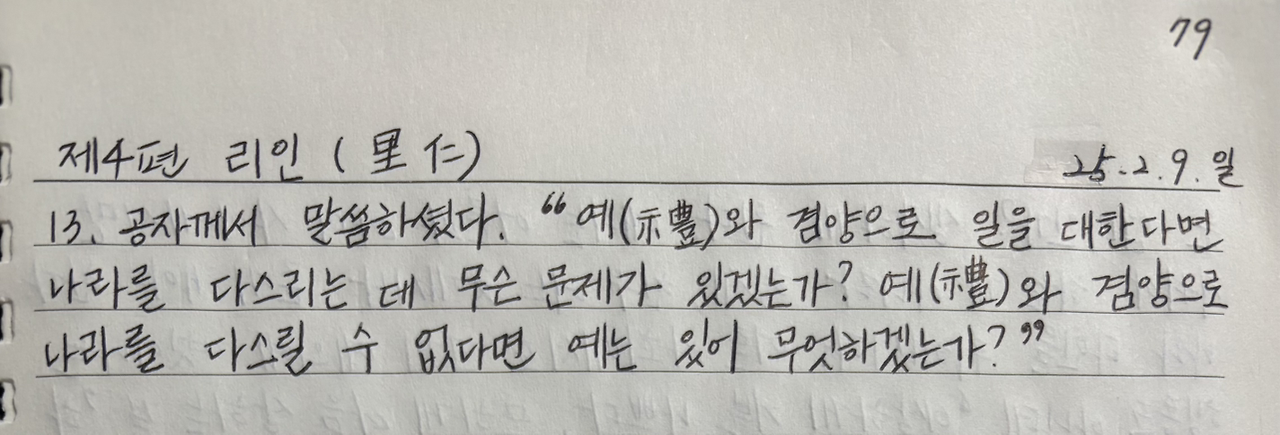 79
제4편 리인 (里仁) 25.2.9.일
13. 공자께서 말씀하셨다. “예(禮)와 겸양으로 일을 대한다면
나라를 다스리는 데 무슨 문제가 있겠는가? 예(禮)와 겸양으로
나라를 다스릴 수 없다면 예는 있어 무엇하겠는가?”